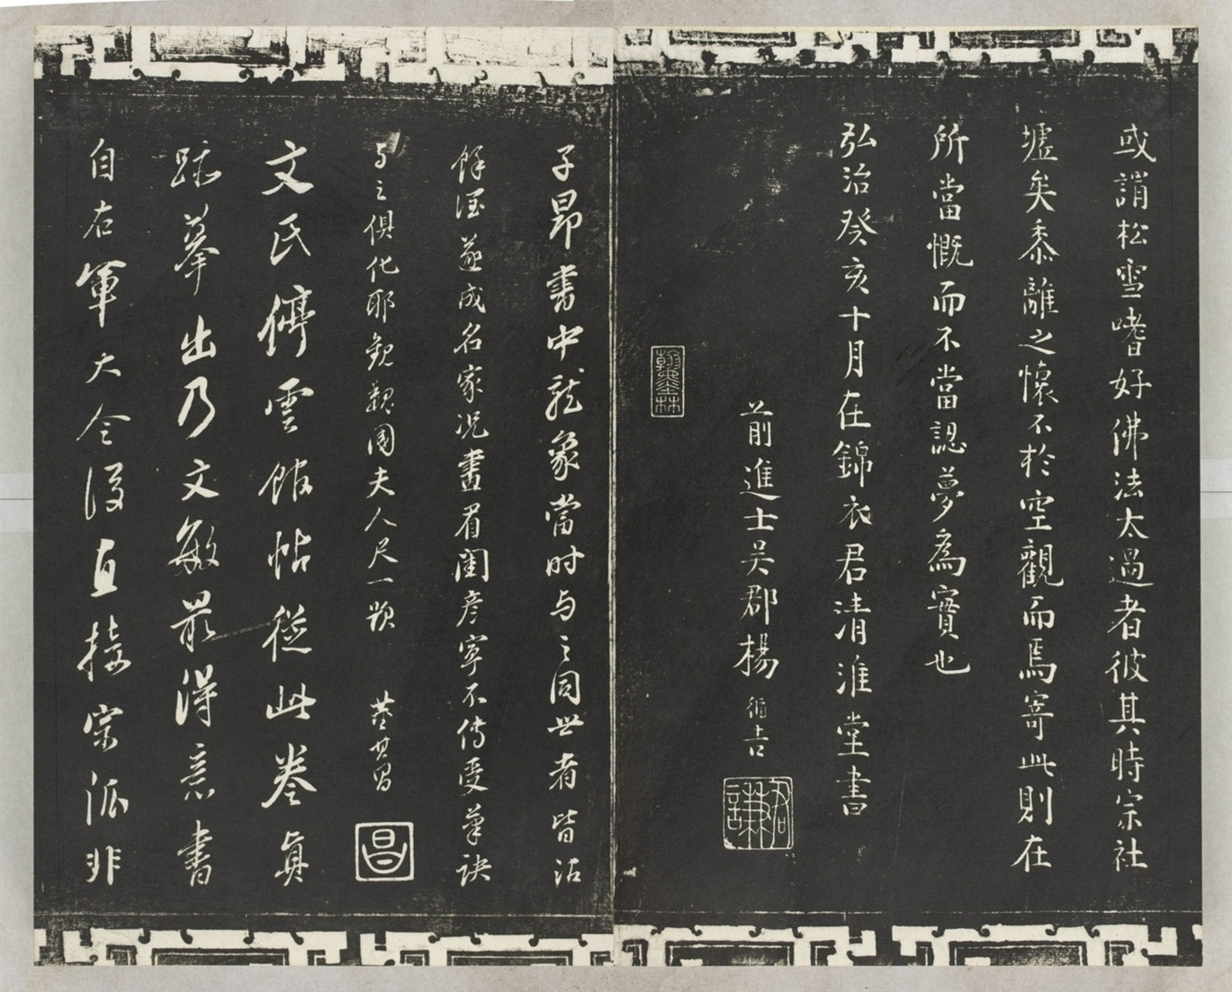 或謂松雪嗜好佛法太過者彼其時宗社
墟矣黍離之懷不於空觀而焉寄此則在
所當慨而不當認夢為實也
弘治癸亥十月在錦衣君清淮堂書
前進士吳郡楊循吉
君謙
子昂書中龍象當时与之同世者皆沾
餘瀋遂成名家況畫眉閨彥寧不傳受筆訣
与之俱化耶觀魏國夫人尺一題 董其昌
昌
文氏停雲館帖從此卷真
跡摹出乃文敏最得意書
自右軍大令後直接宗派非